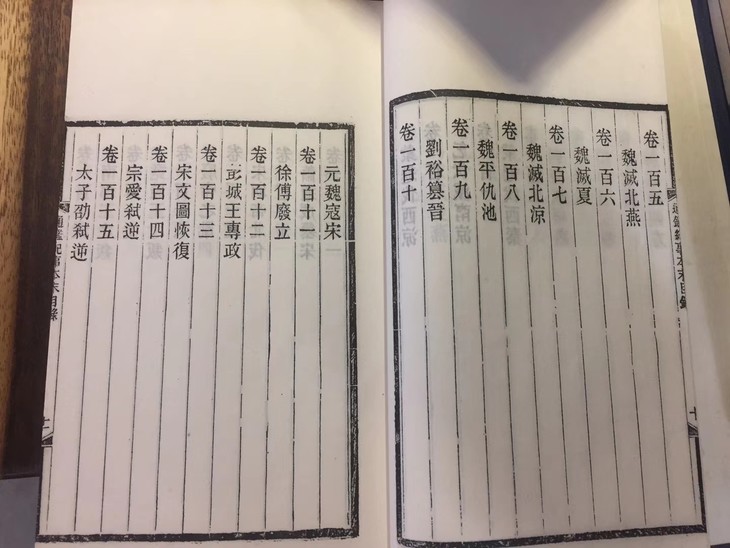 卷一百五
魏滅北燕
卷一百六
魏滅夏
卷一百七
魏滅北涼
卷一百八
魏平仇池
卷一百九
劉裕篡晉
卷一百十
元魏寇宋
卷一百十一
徐傅廢立
卷一百十二
彭城王專政
卷一百十三
宋文圖恢復
卷一百十四
宗愛弑逆
卷一百十五
太子劭弑逆
通鑑紀事本末目錄